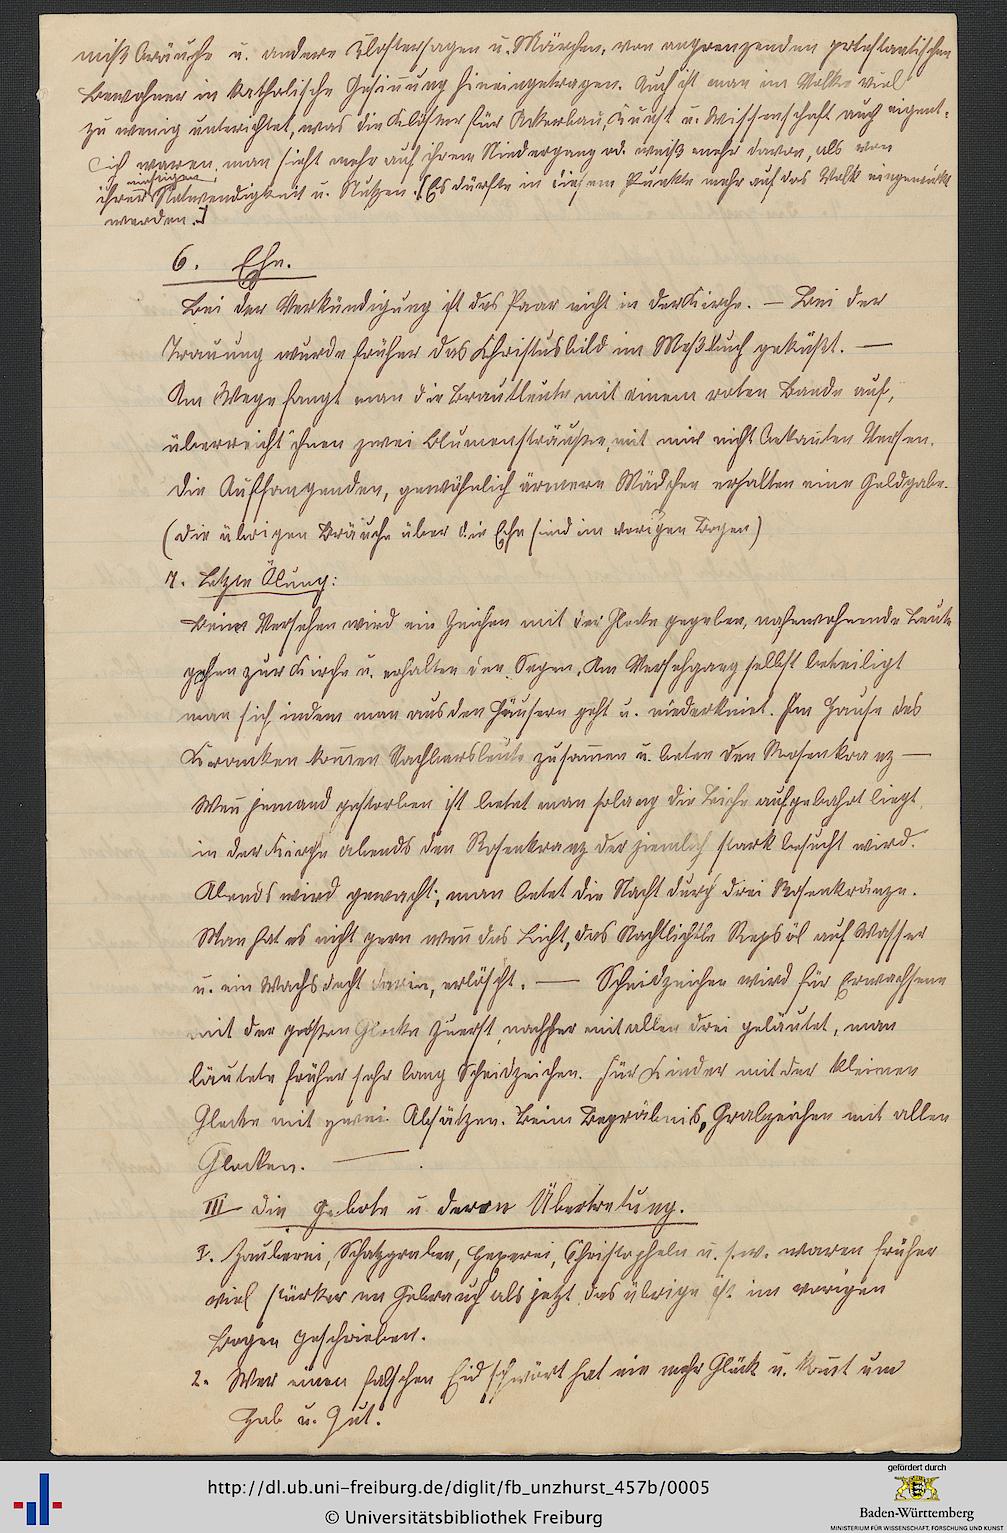 mißbräuche u. andere Klostersagen u. Märchen, von angrenzenden protestantischen
Bewohner in katholische Gesinnung hineingetragen. Auch ist man im Volke viel
zu wenig unterichtet, was die Klöster für Ackerbau, Kunst u. Wissenschaft auch eigent-
lich waren, man sieht mehr auf ihren Niedergang od. weiß mehr davon, als von
einstigen
ihrer Notwendigkeit u. Nutzen. [Es dürfte in diesem Punkte mehr auf das Volk eingewirkt
werden.]
6. Ehe.
Bei der Verkündigung ist das Paar nicht in der Kirche. — Bei der
Trauung wurde früher das Christusbild im Meßbuch geküßt. —
Am Wege fangt man die Brautleute mit einem roten Bande auf,
überreicht ihnen zwei Blumensträuße, mit mir nicht bekañten Versen.
Die Auffangenden, gewöhnlich ärmere Mädchen erhalten eine Geldgabe.
(Die übrigen Bräuche über die Ehe sind im vorigen Bogen)
7. Letzte Ölung:
Beim Versehen wird ein Zeichen mit der Glocke gegeben, nahewohnende Leute
gehen zur Kirche u. erhalten den Segen. Am Versehgang selbst beteiligt
man sich indem man aus den Häusern geht u. niederkniet. Im Hause des
Kranken kom̄en Nachbarsleute zusam̄en u. beten den Rosenkranz —
Weñ jemand gestorben ist betet man solang die Leiche aufgebahrt liegt,
in der Kirche abends den Rosenkranz der ziemlich stark besucht wird.
Abends wird gewacht; man betet die Nacht durch drei Rosenkränze.
Man hat es nicht gern weñ das Licht, das Nachtlichtle Repsöl auf Wasser
u. ein Wachsdocht darin, erlöscht. — Scheidzeichen wird für Erwachsene
mit der großen Glocke zuerst, nachher mit allen drei geläutet, man
läutete früher sehr lang Scheidzeichen. Für Kinder mit der kleinen
Glocke mit zwei Absätzen. Beim Begräbnis, Grabzeichen mit allen
Glocken. —
III Die Gebote u deren Übertretung.
1. Zauberei, Schatzgraben, Hexerei, Christopheln u. s. w. waren früher
viel stärker im Gebrauch als jetzt das übrige ist im vorigen
Bogen geschrieben.
2. Wer einen falschen Eid schwört hat nie mehr Glück u. kom̄t um
Hab u. Gut.
http://dl.ub.uni-freiburg.de/diglit/fb_unzhurst_457b/0005
© Universitätsbibliothek Freiburg
gefördert durch
Baden-Württemberg
MINISTERIUM FÜR WISSENSCHAFT, FORSCHUNG UND KUNST